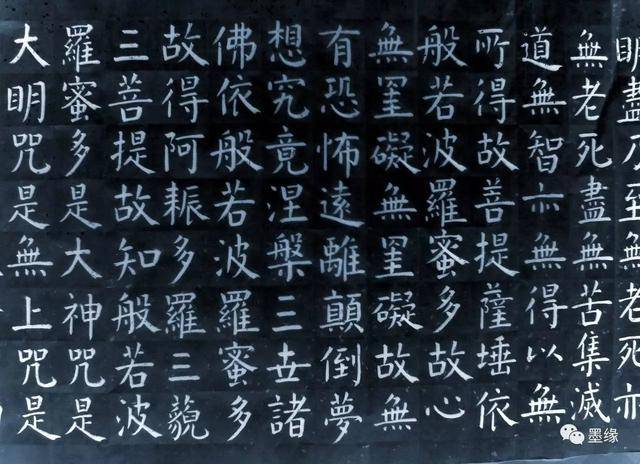 明盡乃至無老死亦
無老死盡無苦集滅
道無智亦無得以無
所得故菩提薩埵依
般若波羅蜜多故心
無罣礙無罣礙故無
有恐怖遠離顛倒夢
想究竟涅槃三世諸
佛依般若波羅蜜多
故得阿耨多羅三藐
三菩提故知般若波
羅蜜多是大神咒是
大明咒是無上咒是
墨缘